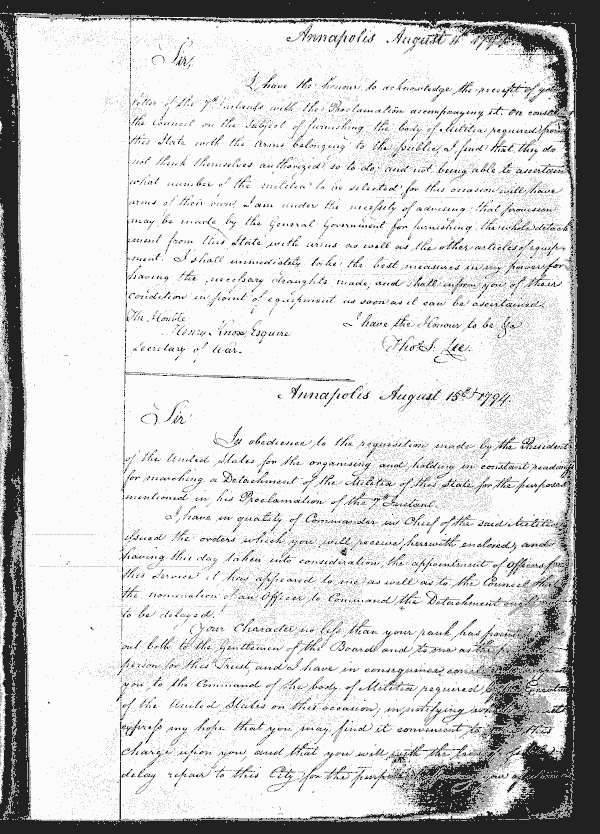 Annapolis August 1794
Sir,
I have the honour to acknowledge the receipt of your
letter of the 7th instant with the Proclamation accompanying it. On
the council on the subject of furnishing the body of Militia required from
this State with the arms belonging to the public, I find that they do
not think themselves authorized so to do, and not being able to ascertain
what number of the militia to be selected for this occasion will have
arms of their own, I am under the necessity of advising that provision
may be made by the General Government for furnishing the whole detach
ment from this State with arms as well as the other articles of equip
ment. I shall immediately take the best measures in my power for
having the necessary draughts made, and shall inform you of their
condition in point of equipment as soon as it can be ascertained.
The Honble
Henry Knox Esquire
Secretary of War.
I have the Honour to be &c
Thos. S. Lee.
Annapolis August 15th 1794.
Sir
In obedience to the requisition made by the President
of the United States for the organising and holding in constant readiness
for marching a Detachment of the Militia of this State for the purposes
mentioned in his Proclamation of the 7th Instant,
I have in quality of Commander in Chief of the said Militia
issued the orders which you will receive herewith enclosed, and
having this day taken into consideration the appointment of Officers for
this Service it has appeared to me as well as to the Council that
the nomination of an Officer to Command the Detachment ought
to be delayed.
Your Character no less than your rank has
out both to the Gentlemen of the Board and to me as the
person for this Trust, and I have in consequence
you to the Command of the body of Militia required
of the United States on this occasion, in notifying
express my hope that you may find it convenient to this
charge upon you and that you will with the
delay repair to this City for the purpose